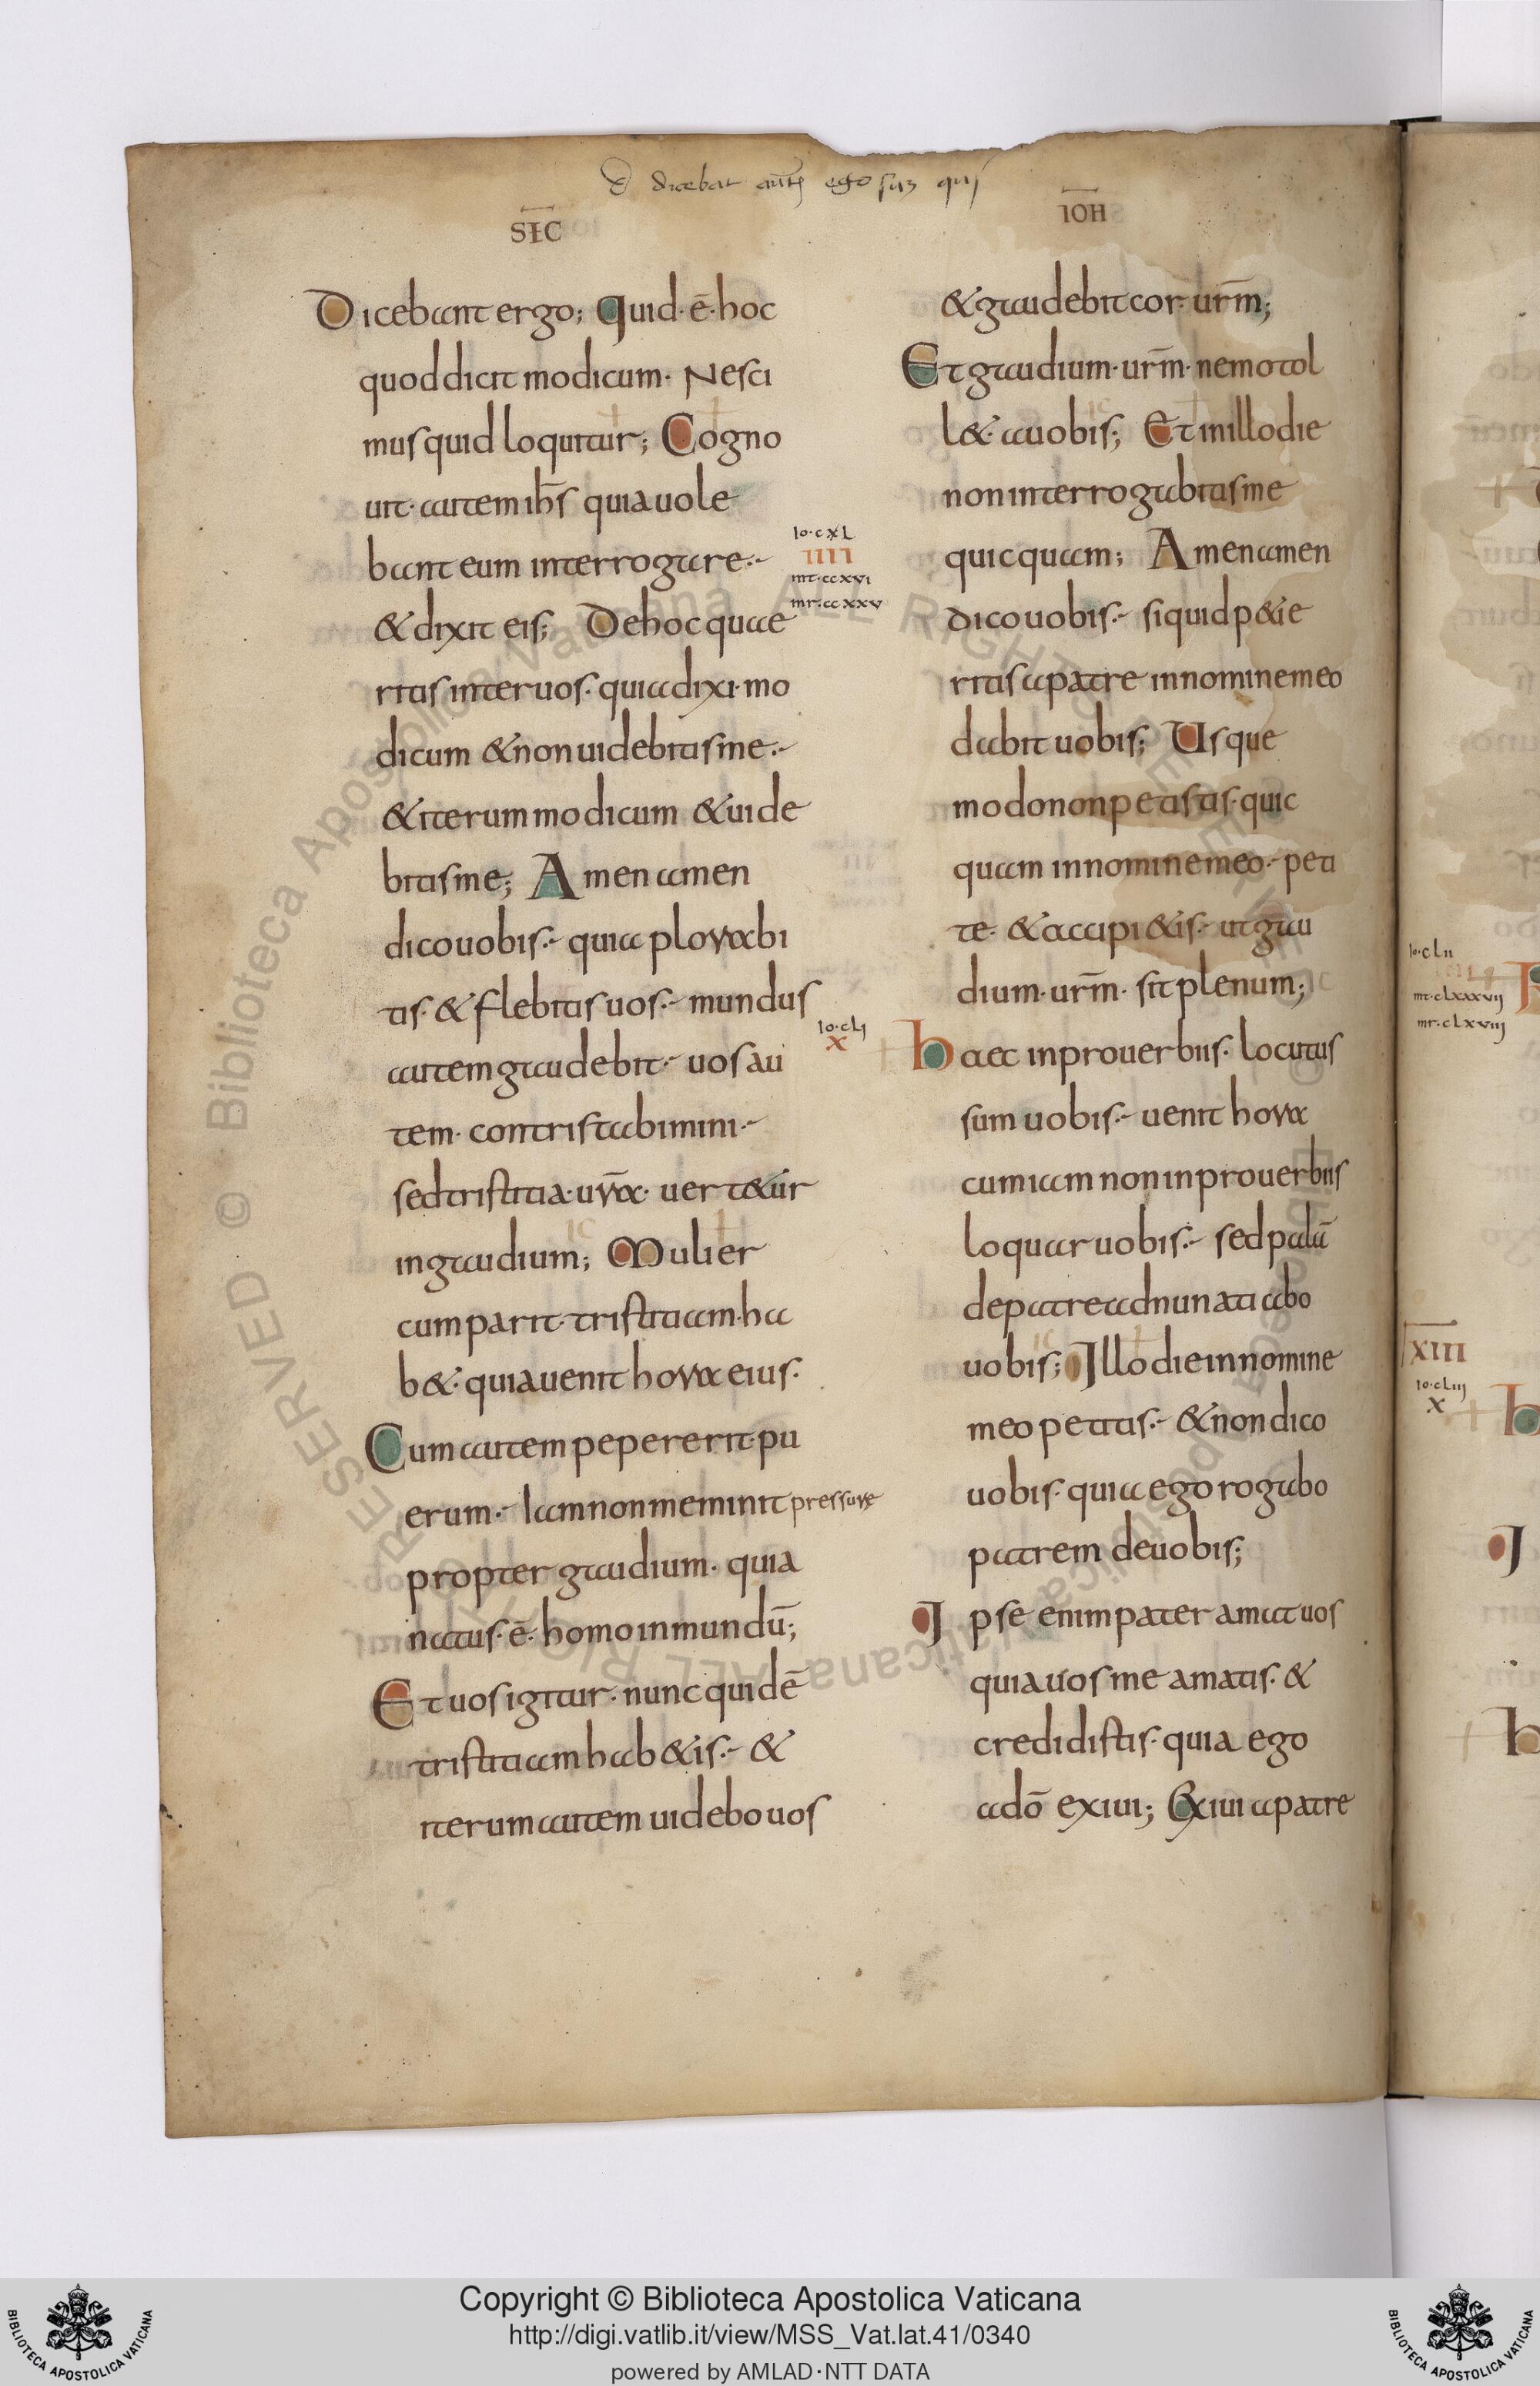 dicebat aut̄ ego sum qui
SĒC
IOH̄
Dicebant ergo; Quid·ē·hoc
quod dicit modicum· Nesci
mus quid loquitur; Cogno
uit· autem ih̄s quia uole
bant eum interrogare·-
& dixit eis; De hoc quae
ritis inter uos· quia dixi· mo
dicum & non uidebitis me·-
& iterum modicum & uide
bitis me; Amen amen
dico uobis·- quia plorabi
tis· & flebitis uos·- mundus
autem gaudebit·- uos au
tem· contristabimini·-
sed tristitia· ur̄a· uert&ur
in gaudium; Mulier
cum parit· tristitiam· ha
b&· quia uenit hora eius·
Cum autem pepererit· pu
erum·- Iam non meminit pressurę
propter gaudium· quia
natus·ē· homo in mundū;
Et uos igitur· nunc quidē
tristitiam hab&is·- &
iterum autem uidebo uos
Io·cXL
IIII
mt·ccxvi
mr·ccxxv
Io·cLI
X
& gaudebit cor· ur̄m;
Et gaudium· ur̄m· nemo tol
l&· a uobis; Et in illo die
non interrogabitis me
quicquam; Amen amen
dico uobis·- si quid p&ie
ritis a patre in nomine meo
dabit uobis; Usque
modo non petistis· quic
quam in nomine meo·- peti
te· & accipi&is·- ut gau
dium· ur̄m· sit plenum;
Haec in prouerbiis· locutus
sum uobis·- uenit hora
cum iam non in prouerbiis
loquar uobis·- sed palā
de patre adnuntiabo
uobis; Illo die in nomine
meo petitis·- & non dico
uobis· quia ego rogabo
patrem de uobis;
Ipse enim pater amat uos
quia uos me amatis· &
credidistis· quia ego
a dō exiui; Exiui a patre
Io·cLII
mt·cLxxxvij
mr·cLxviij
XIII
Io·cLiij
X
Copyright © Biblioteca Apostolica Vaticana
http://digi.vatlib.it/view/MSS_Vat.lat.41/0340
powered by AMLAD·NTT DATA
BIBLIOTECA APOSTOLICA VATICANA
BIBLIOTECA APOSTOLICA VATICANA